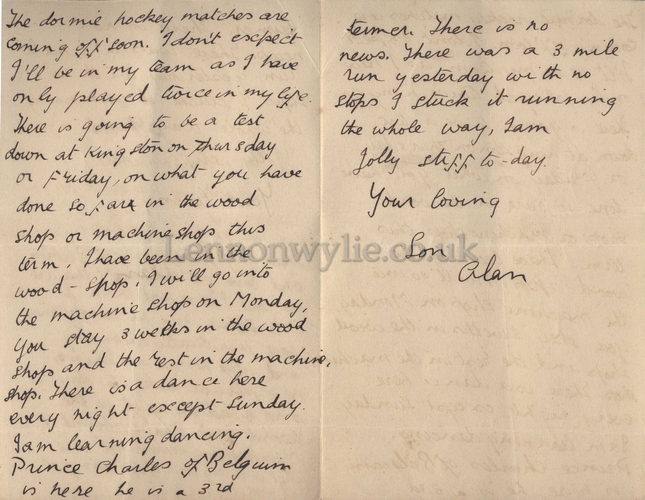 The dormie hockey matches are
coming off soon. I don't escpect
I'll be in my team as I have
only played twice in my life.
There is going to be a test
down at Kingston on Thursday
or Friday, on what you have
done so far in the wood
shop or machine shop this
term. I have been in the
wood-shop. I will go into
the machine shop on Monday,
you stay 3 weeks in the wood
shop and the rest in the machine,
shop. There is a dance here
every night except Sunday.
I am learning dancing.
Prince Charles of Belguim
is here he is a 3rd
termer. There is no
news. There was a 3 mile
run yesterday with no
stops I stuck it running
the whole way, I am
Jolly stiff to-day.
Your loving
Son
Alan
Lennonwylie.co.uk